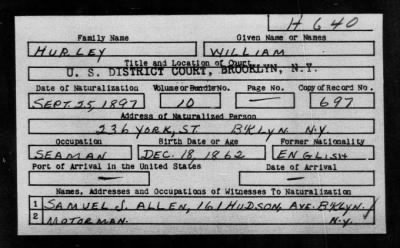 H 640
Family Name Given Name or Names
HURLEY WILLIAM
Title and Location of Court
U. S. DISTRICT COURT, BROOKLYN, N.Y.
Date of Naturalization Volume or Bundle No. Page No. Copy of Record No.
SEPT. 25, 1897 10 — 697
Address of Naturalized Person
236 YORK, ST B'KLYN. N.Y.
Occupation Birth Date or Age Former Nationality
SEAMAN DEC. 18, 1862 ENGLISH
Port of Arrival in the United States Date of Arrival
— —
Names, Addresses and Occupations of Witnesses To Naturalization
1 SAMUEL S. ALLEN, 161 HUDSON, AVE. B'KLYN.
2 MOTORMAN. N.Y.